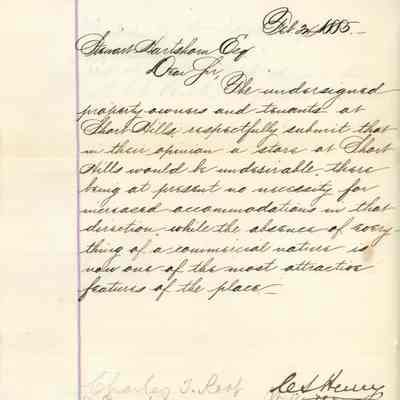 Feb 24 1885.
Stewart Hartshorn Esq
Dear Sir,
The undersigned
property owners and tenants at
Short Hills respectfully submit that
in their opinion a store at Short
Hills would be undesirable, there
being at present no necessity for
increased accommodations in that
direction, while the absence of every-
thing of a commercial nature is
now one of the most attractive
features of the place.
Charles T. Root
C S Henry